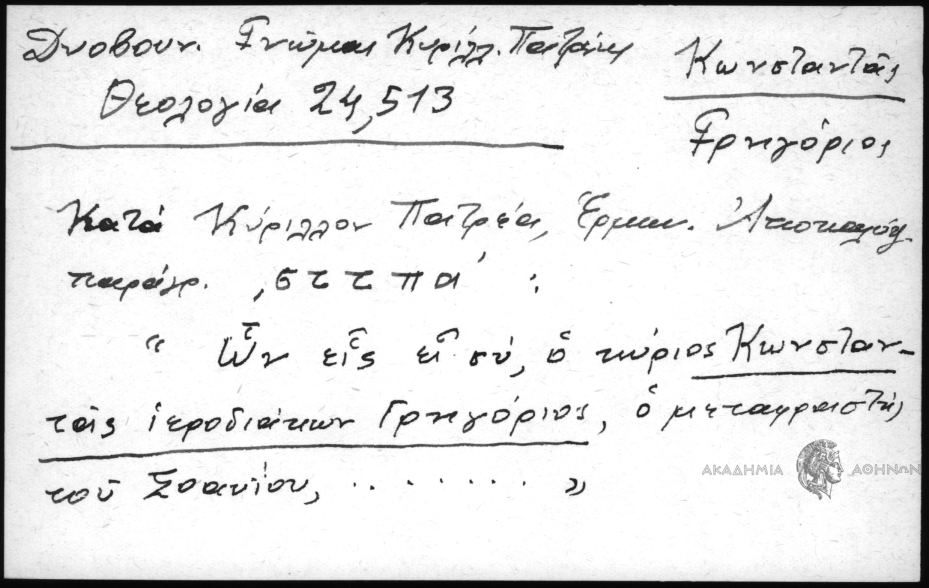 Δυοβουν. Γνῶμαι Κυρίλλ. Πατρῶν
Θεολογία 24,513
Κωνσταντᾶς
Γρηγόριος
Κατά Κύριλλον Πατρέα, Ἑρμην. Ἀποκαλύψ.
παράγρ. ͵στ τ π α΄ :
“ Ὧν εἷς εἶ σύ, ὁ κύριος Κωνσταν–
τᾶς ἱεροδιάκων Γρηγόριος, ὁ μεταφραστὴς
τοῦ ........ »
ΑΚΑΔΗΜΙΑ ΑΘΗΝΩΝ